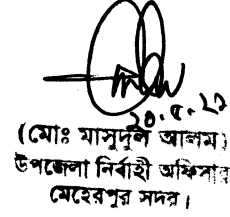 ২০.৫.২১
(মোঃ মাসুদুল আলম)
উপজেলা নির্বাহী অফিসার
মেহেরপুর সদর।